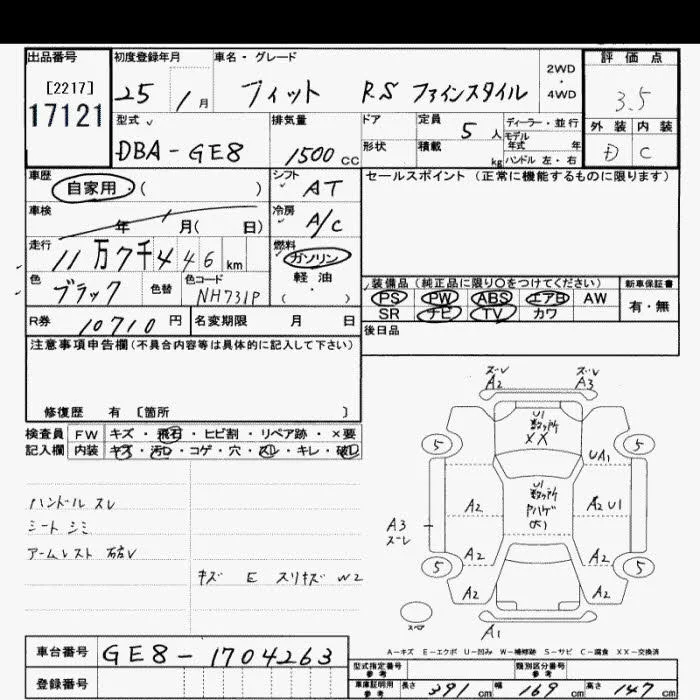 出品番号
[2217]
17121
初度登録年月
25 1月
車名・グレード
フィット RS ファインスタイル
2WD
・
4WD
評価点
3.5
外装 内装
D C
型式
DBA-GE8
排気量
1500 cc
ドア
形状
定員 5人
積載 kg
ディーラー・並行
モデル
年式 年
ハンドル 左・右
車歴
自家用・( )
シフト
AT
セールスポイント (正常に機能するものに限ります)
車検
年 月( 日)
冷房
A/C
走行
11万7千446km
燃料
ガソリン
軽油
・
( )
色
ブラック
色替
色コード
NH731P
装備品 (純正品に限り○をつけてください)
PS PW ABS エアB AW
SR ナビ TV カワ
新車保証書
有・無
R券 10710円
名変期限 月 日
後日品
注意事項申告欄(不具合内容等は具体的に記入して下さい)
修復歴 有 〔箇所 〕
検査員
記入欄
FW キズ・飛石・ヒビ割・リペア跡・×要
内装 キズ・汚レ・コゲ・穴・スレ・キレ・破レ
ハンドル スレ
シート シミ
アームレスト
キズ E スリキズ W2
ズレ
A2
ズレ
A3
U1
数ヶ所
XX
5
5
UA1
U1
数ヶ所
ヤハゲ
A2
A2 U1
A3
ズレ
A2
A2
5
5
A2
A2
A1
A-キズ E-エクボ U-凹み W-補修跡 S-サビ C-腐食 XX-交換済
車台番号 GE8-1704263
登録番号
型式指定番号
参考
類別区分番号
参考
車庫証明用
参考
長さ 391cm 幅 169cm 高さ 147cm